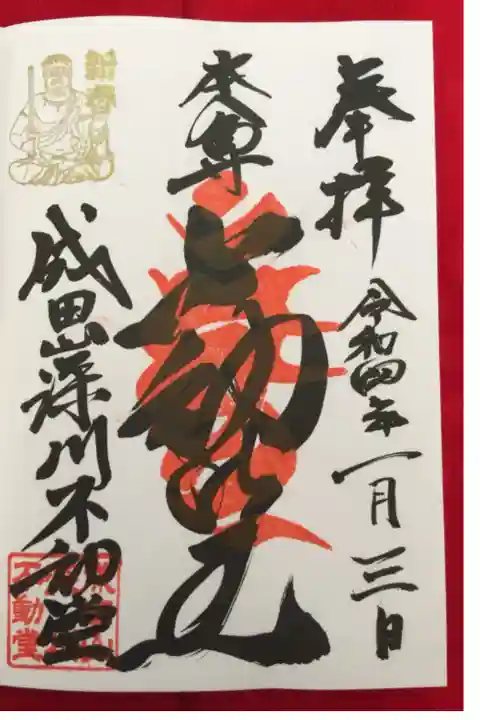 奉拝
令和四年一月三日
本尊
不動明王
成田山深川不動堂
新春
不動堂